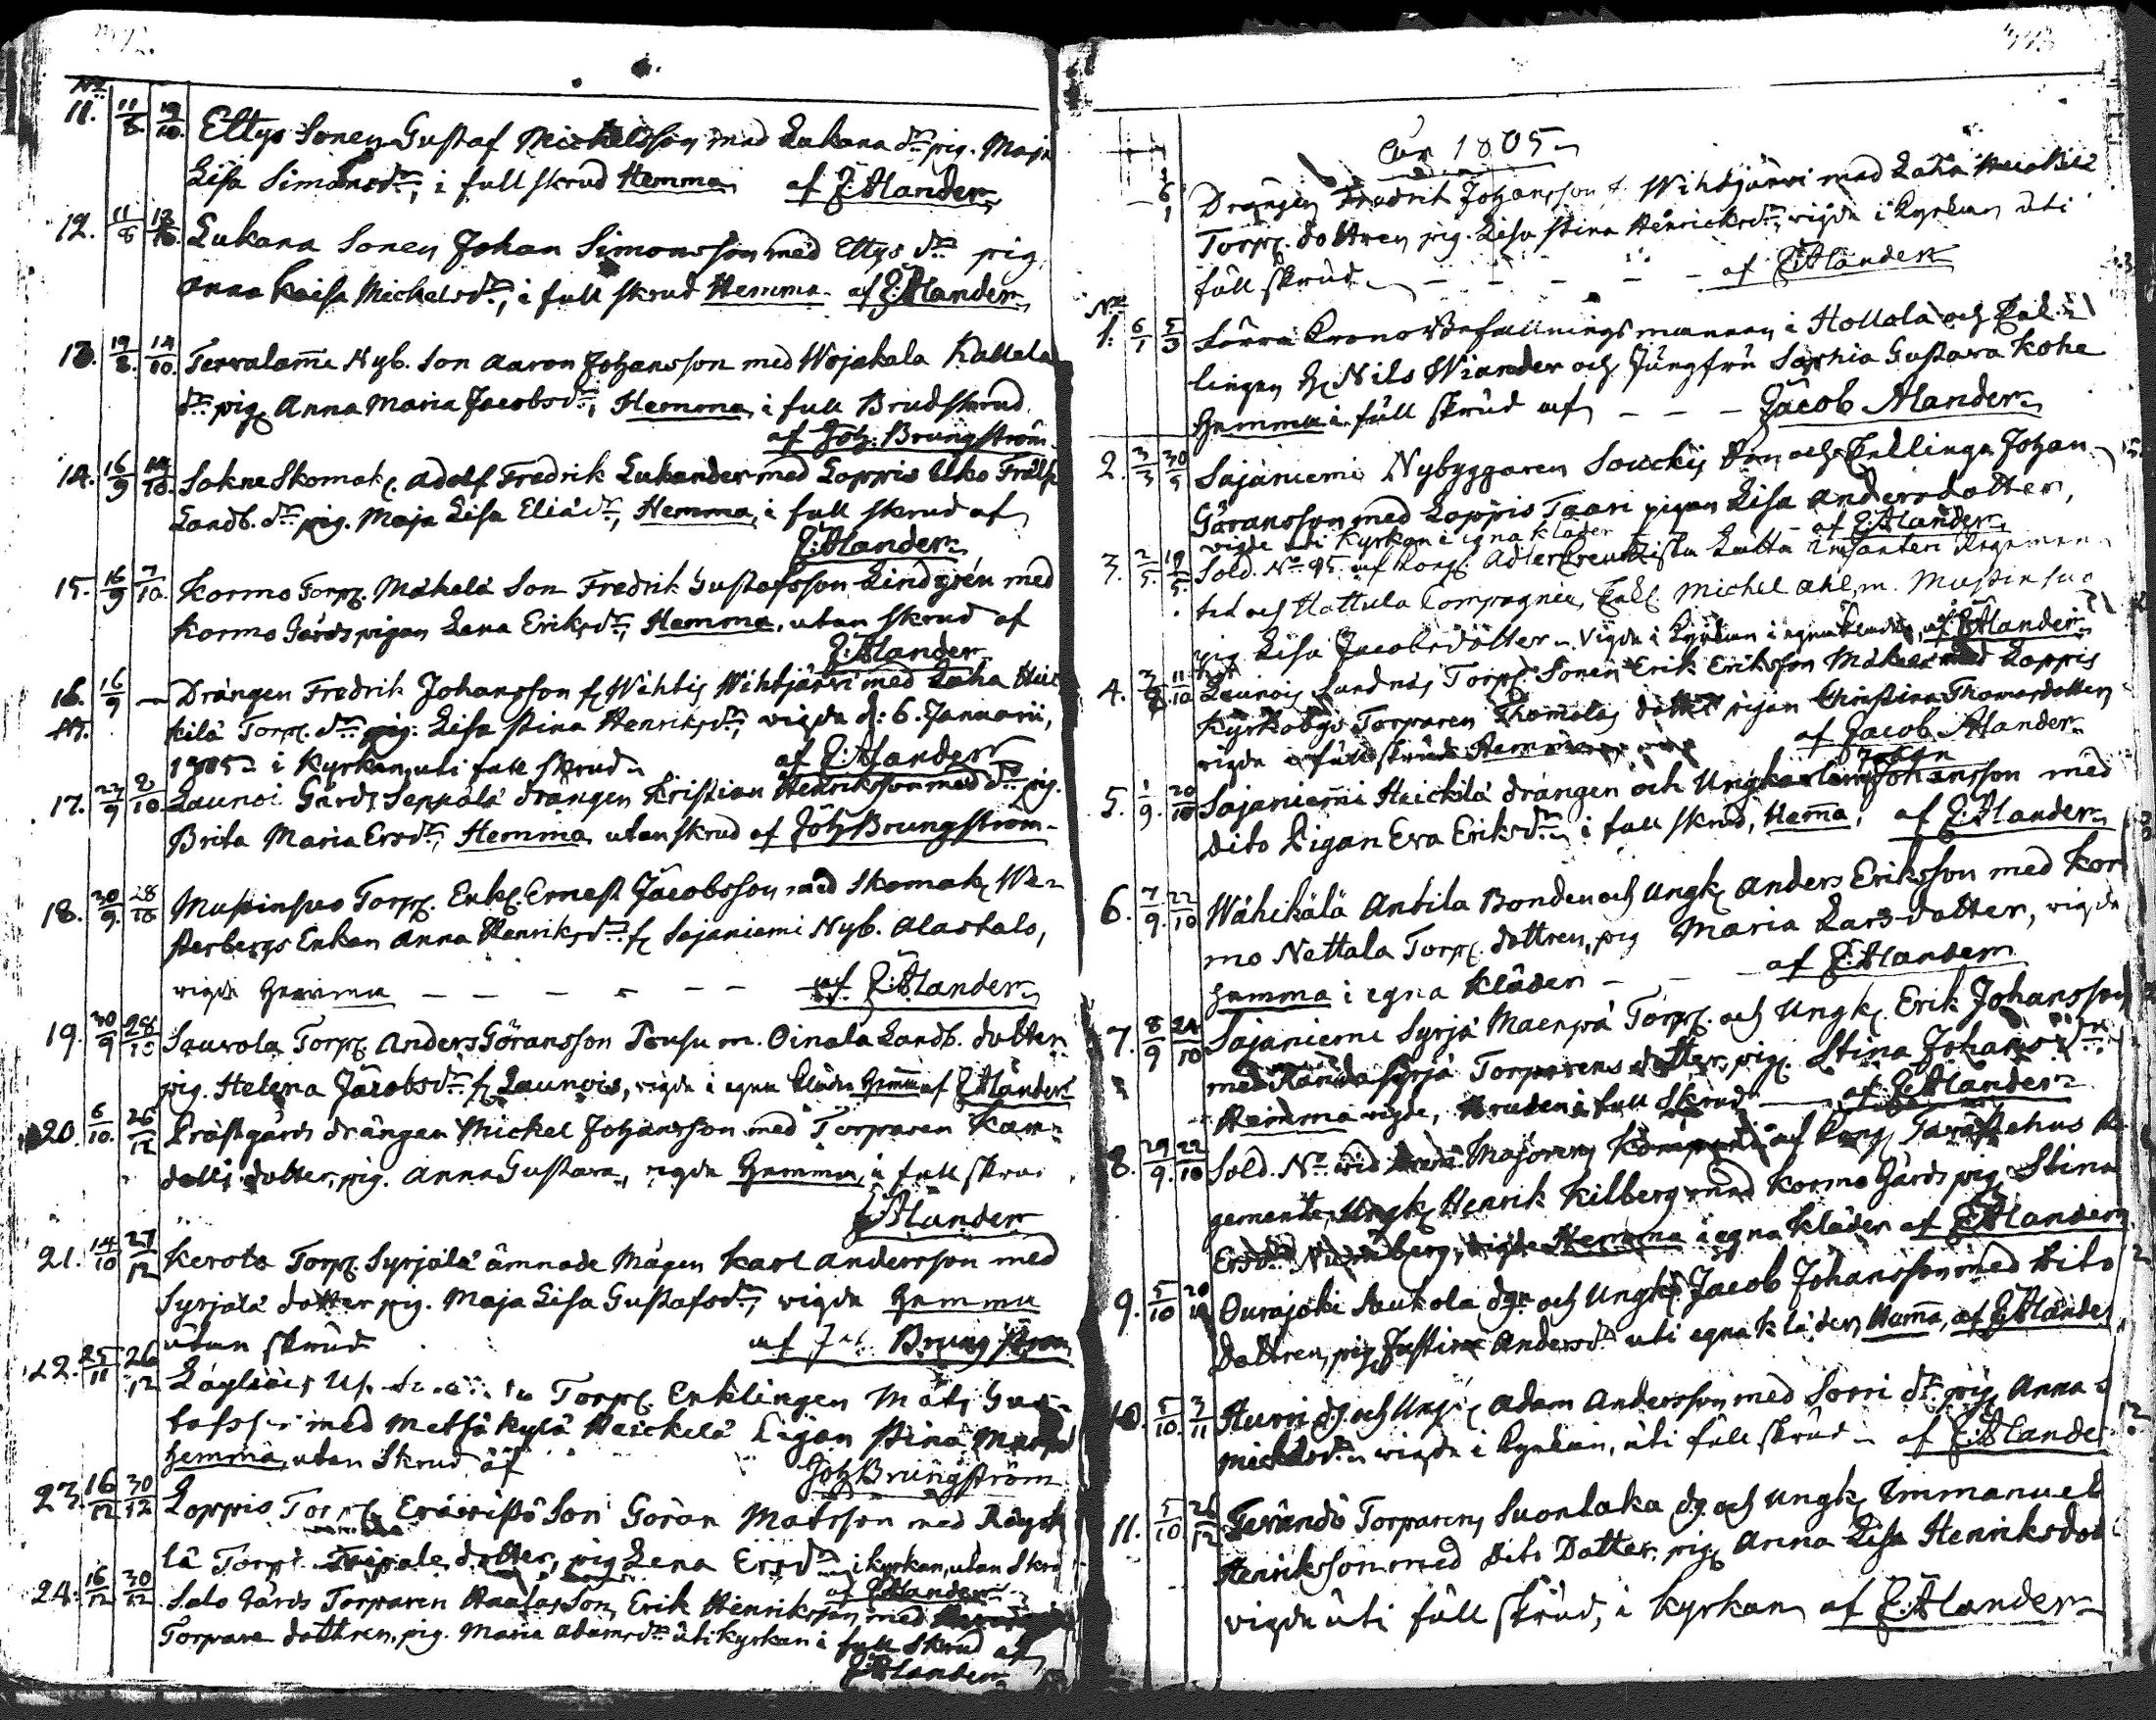 N:o
11. 11/8 19/10. Ettys Sonen Gustaf Mickelsson med Lukana d:r pig. Maja
Lisa Simonsd:r, i full skrud Hemma af J: Alander
12. 11/8 Lukana Sonen Johan Simonsson med Ettys d:r pig.
Anna Kaisa Michelsd:r, i full skrud Hemma af J: Alander
13. 19/8. 14/10. Terralame Nyb. Son Aaron Johansson med Wojakala Kallela
d:r pig. Anna Maria Jacobsd:r, Hemma i full Brudskrud
af Joh: Brungström
14. 16/9 14/10. Sakne Skomak. Adolf Fredrik Lukander med Loppis Uko
Landb. d:r pig. Maja Lisa Eliæd:r, Hemma, i full skrud af
J: Alander
15. 16/9 7/10. Kormo Torp. Mäkelä Son Fredrik Gustafsson Lindgrén med
Kormo Gårds pigan Lena Eriksd:r, Hemma, utan skrud af
J: Alander
16. 16/9 — Drängen Fredrik Johansson f. Wihtis Wihtjärvi med Laha
kilä Torp. d:r pig. Lisa Stina Henriksd:r, vigde d: 6. Januarii,
1805 i Kyrkan, uti full skrud af J: Alander
17. 27/9 2/10 Launoi Gårds Seppälä drängen Kristian Henriksson med d:o pig.
Brita Maria Ersd:r, Hemma utan skrud af Joh: Brungström
18. 30/9. 28/10 Mustinsuo Torp. Enkl. Ernest Jacobsson med Skomak. We-
sterbergs Enkan Anna Henriksd:r f. Sajaniemi Nyb. Alastalo,
vigde Hemma — — — — — — af J: Alander
19. 30/9 28/10 Saurola Torp. Anders Göransson Pousu m. Oinala Landb. dotter
pig. Helena Jacobsd:r f. Launois, vigde i egna kläder Hemma af J: Alander
20. 6/10. 26/12 Prästgårds drängen Mickel Johansson med Torparen Kan-
dolls dotter, pig. Anna Gustava, vigde Hemma, i full skrud
J: Alander
21. 14/10 27/12 Kerota Torp. Syrjälä ämnade Mågen Karl Andersson med
Syrjälä dotter pig. Maja Lisa Gustafsd:r, vigde Hemma
utan skrud af Joh. Brungström
22. 25/11 26/12 Läyliäis Torp. Enklingen Mats Gus-
tafsson med Metsäkylä Heickelä Pigan Stina
Hemma, utan Skrud af Joh: Brungström
23. 16/12 30/12 Loppis Torp. Eräviistö Son Göran Matsson med
lä Torp. dotter, pig Lena Ersd:r i kyrkan, utan Skrud
af J: Alander
24. 16/12 30/12 Salo Gårds Torparen Son, Erik Henriksson, med
Torpare dottren, pig. Maria Adamsd:r uti Kyrkan i full Skrud af
J: Alander
År 1805
6/1 Drängen Fredrik Johansson f. Wihtjärvi med Laha
Torp. dottren pig. Lisa Stina Henricksd:r, vigde i Kyrkan uti
full skrud — — — — — af J: Alander
N:o
1. 6/1 5/3 Förra Krono Befallningsmannen i Hollola och Enk-
lingen H. Nils Wiander och Jungfru Sophia Gustava Kohe
Hemma i full skrud af — — — Jacob Alander
2. 3/3 30/5 Sajaniemi Nybyggaren Souckis Son och Enklinge Johan
Göransson med Loppis Taari pigan Lisa Andersdotter,
vigde uti Kyrkan i egna kläder af J: Alander
3. 2/5. 19/5. Sold. N:o 95 af Kongl. Adlercreutziska Lätta Infanteri Regemen-
tet och Hattula Compagnie, Enkl. Michel Ahl, m. Mustinsuo
pig Lisa Jacobsdotter. Vigde i Kyrkan i egna kläder, af J: Alander
4. 11/10 Launois Torp. Sonen Erik Eriksson Mäkelä med Loppis
Kyrkobys Torparen Thomolas dotter pigan Christina Thomasdotter
vigde i full skrud Hemma af Jacob Alander
5. 1/9. 20/10 Sajaniemi Heickilä drängen och Ungkarlen Johan Johansson med
dito Pigan Eva Eriksd:r i full skrud, Hem̄a, af J: Alander
6. 7/9. 22/10 Wähikälä Antila Bonden och Ungk. Anders Eriksson med Kor
mo Nettala Torp. dottren, pig Maria Larsdotter, vigde
Hemma i egna kläder — — — af J: Alander
7. 8/9 24/10 Sajaniemi Syrjä Maenpä Torp. och Ungk. Erik Johansson
med Syrjä Torparens dotter, pig. Stina Johansd:r
Hemma vigde, Bruden i full Skrud — af J: Alander
8. 29/9. 22/10 Sold. N:o vid Majorens Kompani af Kongl. Tavastehus Re
gemente, Ungk. Henrik Kilberg med Kormo Gårds pig. Stina
Ersd:r, vigde Hemma i egna kläder af J: Alander
9. 5/10 20/ Ourajoki Saukola dgn och Ungk. Jacob Johansson med dito
Dottren, pig. Justina Andersd:r uti egna kläder, Hem̄a, af J: Alander
10. 5/10. 3/11 Hurri dg. och Ungk. Adam Andersson med Sorri d:r pig. Anna
Mickelsd:r vigde i Kyrkan, uti full skrud af J: Alander
11. 5/10 26/12 Torparens Suontaka dg. och Ungk. Immanuel
Henriksson med dito Dotter, pig. Anna Lisa Henriksdot
vigde uti full skrud, i Kyrkan af J: Alander